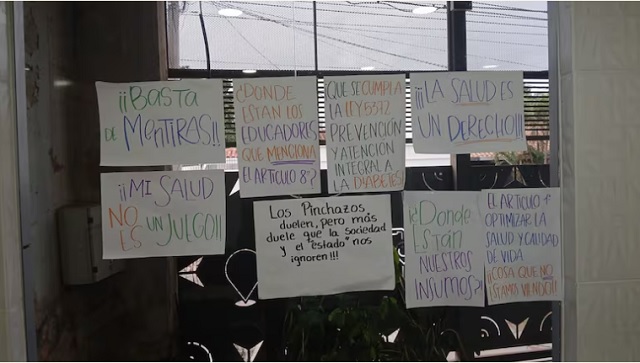 ¡¡BASTA
DE MENTIRAS!!
¿DONDE
ESTAN LOS
EDUCADORES
QUE MENCIONA
EL ARTICULO 8°?
QUE SE CUMPLA
LA LEY 5372
PREVENCIÓN
Y ATENCIÓN
INTEGRAL A
LA DIABETES!
¡¡LA SALUD ES
UN DERECHO!!!
¡¡MI SALUD
NO ES
UN JUEGO!!
Los Pinchazos
duelen, pero más
duele que la sociedad
y el "estado" nos
ignoren!!!
¿¡Donde
ESTÁN
NUESTROS
INSUMOS?!
EL ARTICULO 4
OPTIMIZAR LA
SALUD Y CALIDAD
DE VIDA
¡¡COSA QUE NO
ESTAMOS VIENDO!!